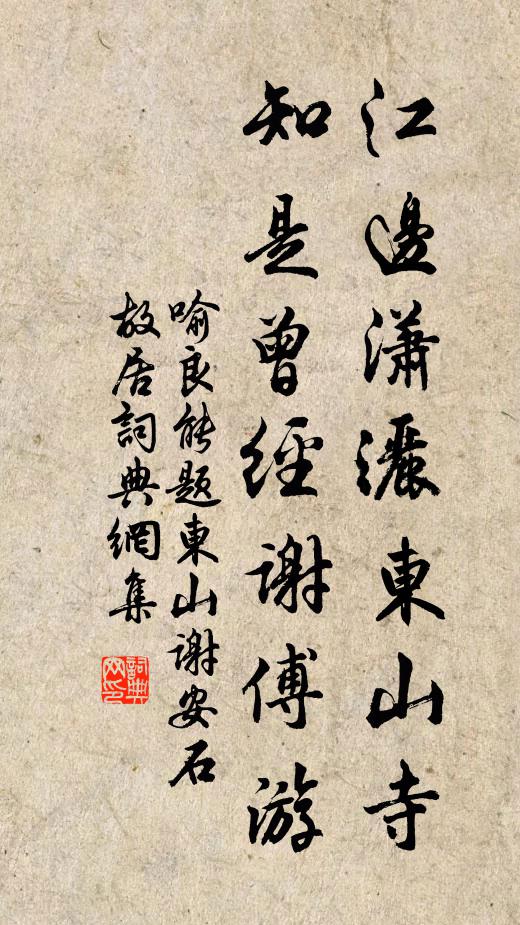 江邊瀟灑東山寺
知是曾經謝傅游
喻良能題東山謝安石
故居詞典網集
詞典網印